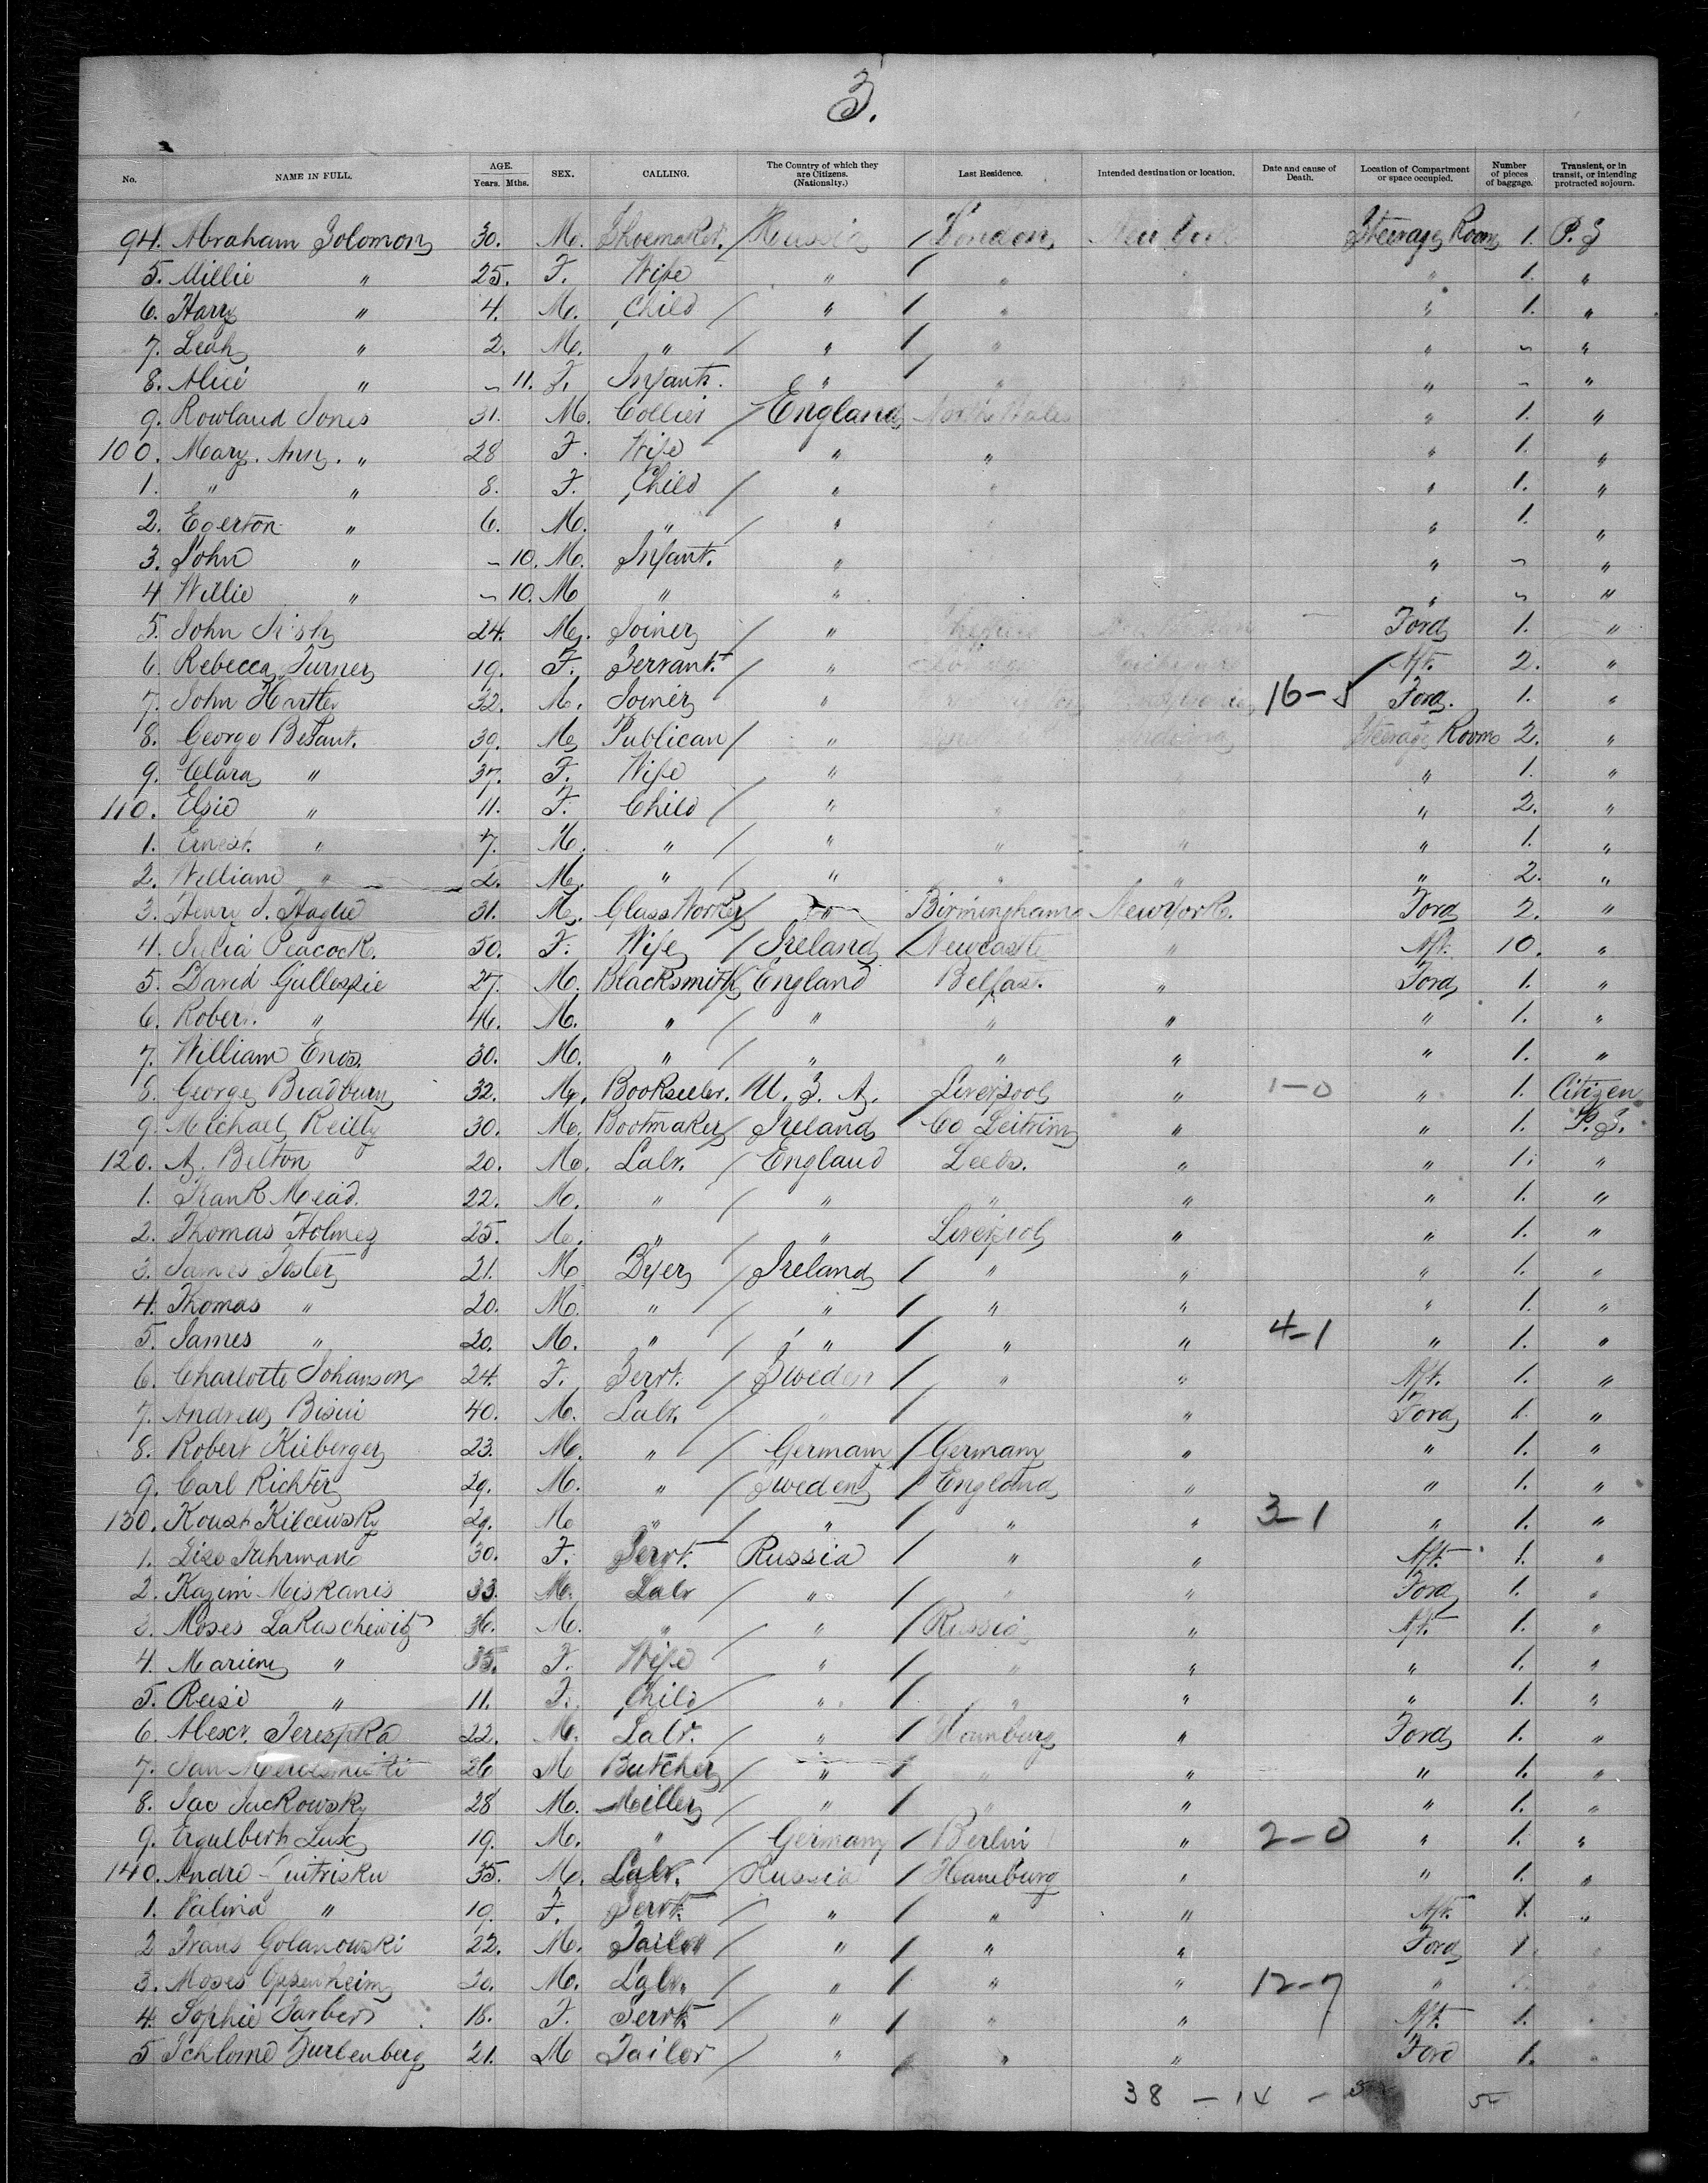 3.
No. NAME IN FULL. AGE. Years. Mths. SEX. CALLING. The Country of which they are Citizens. (Nationalty.) Last Residence. Intended destination or location. Date and cause of Death. Location of Compartment or space occupied. Number of pieces of baggage. Transient, or in transit, or intending protracted sojourn.
94. Abraham Solomon 30. M. Shoemaker. / Russia / London New York Steerage Room 1. P.S
5. Millie " 25. F. Wife " / " " 1. "
6. Harry " 4. M. Child / " / " " 1. "
7. Leah " 2. M. " / " / " " ~ "
8. Alice " ~ 11. F. Infant. " / " " ~ "
9. Rowland Jones 31. M. Collier / England North Wales " 1. "
100. Mary Ann. " 28 F. Wife " " " 1. "
1. " " 8. F. Child / " " " 1. "
2. Egerton " 6. M. " / " " 1. "
3. John " ~ 10. M. Infant. " " ~ "
4 Willie " ~ 10. M " " " ~ "
5. John 24. M. Joiner / " Ford 1. "
6. Rebecca Turner 19. F. Servant. / " Aft. 2. "
7. John 32. M. Joiner " 16-5 Ford. 1. "
8. George Besant. 39. M. Publican / " Steerage Room 2. "
9. Clara " 37. F. Wife " " 1. "
110. Elsie " 11. F. Child / " " 2. "
1. Ernest. " 7. M. " / " " " " 1. "
2. William " 2. M. " / " " " " 2. "
3. Henry J. 31. M. Glass Worker / " Birmingham New York. Ford 2. "
4. Julia Peacock. 50. F. Wife / Ireland / Newcastle " Aft. 10. "
5. David Gillespie 27. M. Blacksmith / England Belfast. " Ford 1. "
6. Robert. " 46. M. " / " " " " 1. "
7. William Enos. 30. M. " / " " " " 1. "
8. George Bradburn 32. M. Bookseller. U. S. A. Liverpool " 1-0 " 1. Citizen
9. Michael Reilly 30. M. Bootmaker / Ireland Co Leitrim " " 1. P.S.
120. A. Belton 20. M. Labr. / England Leeds. " " 1. "
1. Frank Mead. 22. M. " / " " " " 1. "
2. Thomas Holmes 25. M. " / " Liverpool " " 1. "
3. James Foster 21. M Dyer / Ireland / " " " 1. "
4. Thomas " 20. M. " / " / " " " 1. "
5. James " 20. M. " / " / " " 4-1 " 1. "
6. Charlotte Johanson 24. F. Servt. / Sweden / " " Aft. 1. "
7. Andrew 40. M. Labr. / " / " Ford 1. "
8. Robert Kieberger 23. M. " / Germany / Germany " " 1. "
9. Carl Richter 29. M. " / Sweden / England " " 1. "
130. Koust Kilcewsky 29. M " / " / " " 3-1 " 1. "
1. 30. F. Servt. Russia / " " Aft. 1. "
2. Kazim Miskanis 33. M. Labr / " / " " Ford 1. "
3. Moses Lakaschewitz 36. M. " / " / Russia " Aft. 1. "
4. " 35. F. Wife / " / " " " 1. "
5. " 11. F. Child / " / " " " 1. "
6. Alexr. Terespka 22. M. Labr. / " / Hamburg " Ford 1. "
7. Jan 26 M Butcher / " / " " " 1. "
8. Jackowsky 28 M. Miller / " / " " " 1. "
9. 19. M. " / Germany / Berlin " 2-0 " 1. "
140. Andre 35. M. Labr. / Russia / Hamburg " " 1. "
1. " 19. F. Servt. " / " " Aft. 1. "
2 Frans Golanowski 22. M. Tailor " / " " Ford 1. "
3. Moses Oppenheim M. Labr. / " / " " 12-7 "
4. Sophie 18. F. Servt. / " / " " Aft. 1.
5 Schlome Furlenberg 21. M Tailor / " / " " Ford 1.
38 - 14 -